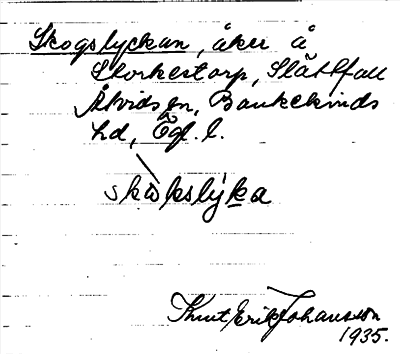 Skogslyckan, åker å
Storkestorp, Slättfall
Åtvids sn, Bankekinds
hd, Ögl. l.
skòkslýka
Knut Erik Johansson
1935.